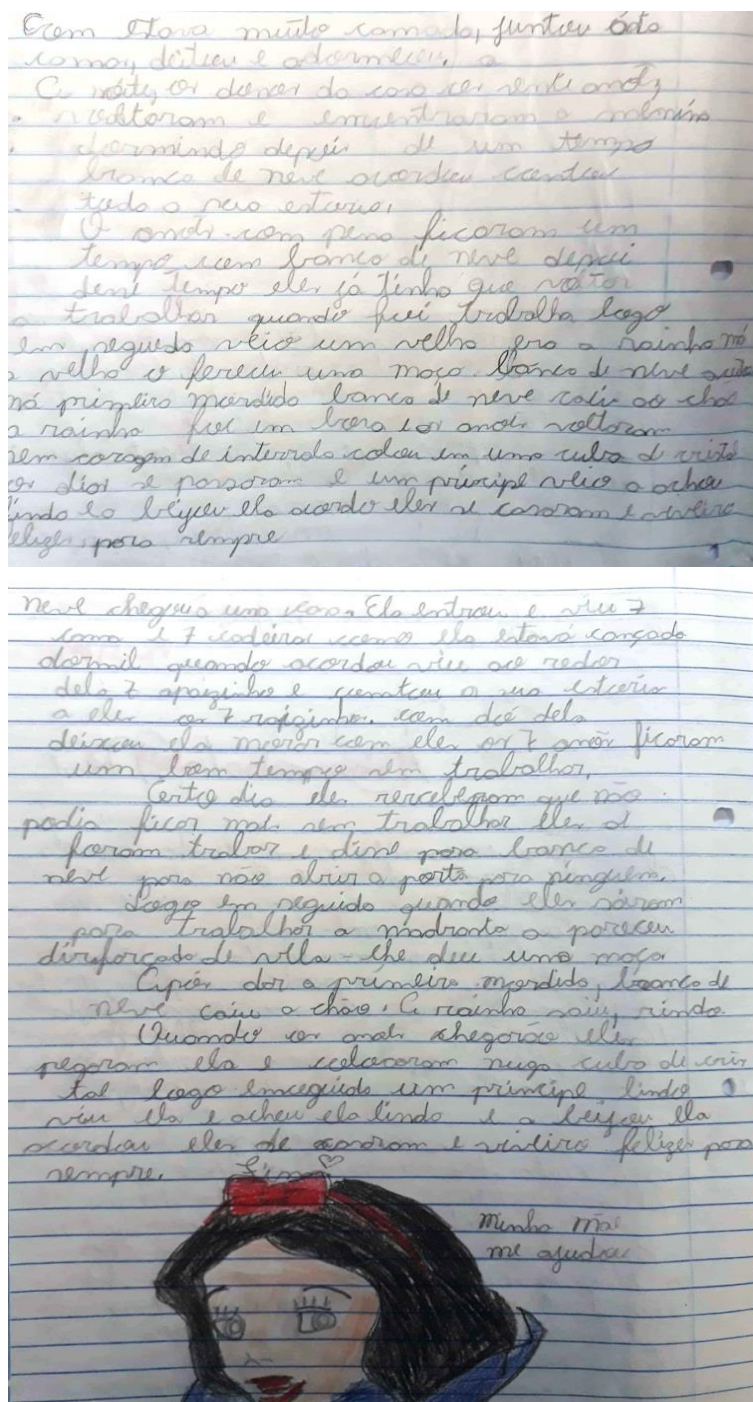 Com stava muito camada, juntou oito
camas, deitou e adormeceu, a
A noite, os donos da casa os sente anois
voltaram e emcuntraram a menina
dormindo depois de um tempo
branca de neve acordou contou
tudo a sua estoria,
O anois com pena ficaram um
tempo com branca de neve depoi
dení tempo eles já tinha que voltar
a trabalhar quando foi trabalha logo
em seguida veio um velha era a rainha má
a velha o fereceu uma maça. branca de neve
ná primeira mordida banca de neve caiu ao chão
a rainha foi im bora ios anois voltoram
sem coragem de interrala colou em uma cuba d crista
os dias se passaram e um príncipe veio a achou
linda ea beijou ela acordo eles se casaram e viveiro
felizes para sempre
neve chegou uma casa. Ela entrou e viu 7
cama e 7 cadeiras como ela estava cançada
dormil quando acordou viu ao redor
dela 7 apazinho e comtou a sua estoria
a eles os 7 rapizinho. com dó dela
deixou ela morar com eles os 7 anões ficaram
um bom tempo sem trabalhar,
Certo dia eles perceberam que não
podia ficar mas sem trabalhar eles a
foram trabar e dise para branca de
neve para não abrir a porta para ninguem,
Logo em seguida quando eles sairam
para trabalhar a madrasta a pareceu
disforçada de vella - lhe deu uma maça
Após dar a primeira mordida, branca de
neve caiu a chão. A rainha saiu, rindo.
Quando os anois chegarão eles
pegaram ela e colocaram nuga cuba de cris
tal logo emceguida um principe lindo
viu ela e achou ela linda e a beijou ela
acordou eles se casaram e viveiro felizes para
sempre.
Fim
Minha mãe
me ajudou